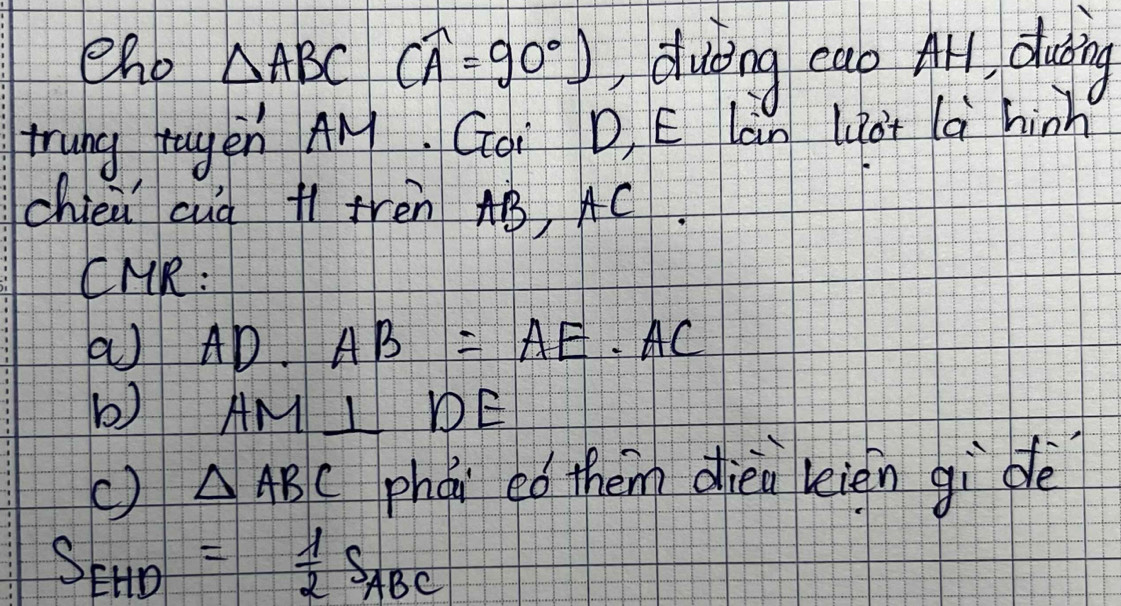 Cho △ABC (Â = 90°), đường cao AH, đường
trung tuyến AM. Gọi D, E lần lượt là hình
chiếu của H trên AB, AC.
CMR:
a) AD. AB = AE. AC
b) AM ⊥ DE
c) △ABC phải có thêm điều kiện gì để
S_EHD = 1/2 S_ABC